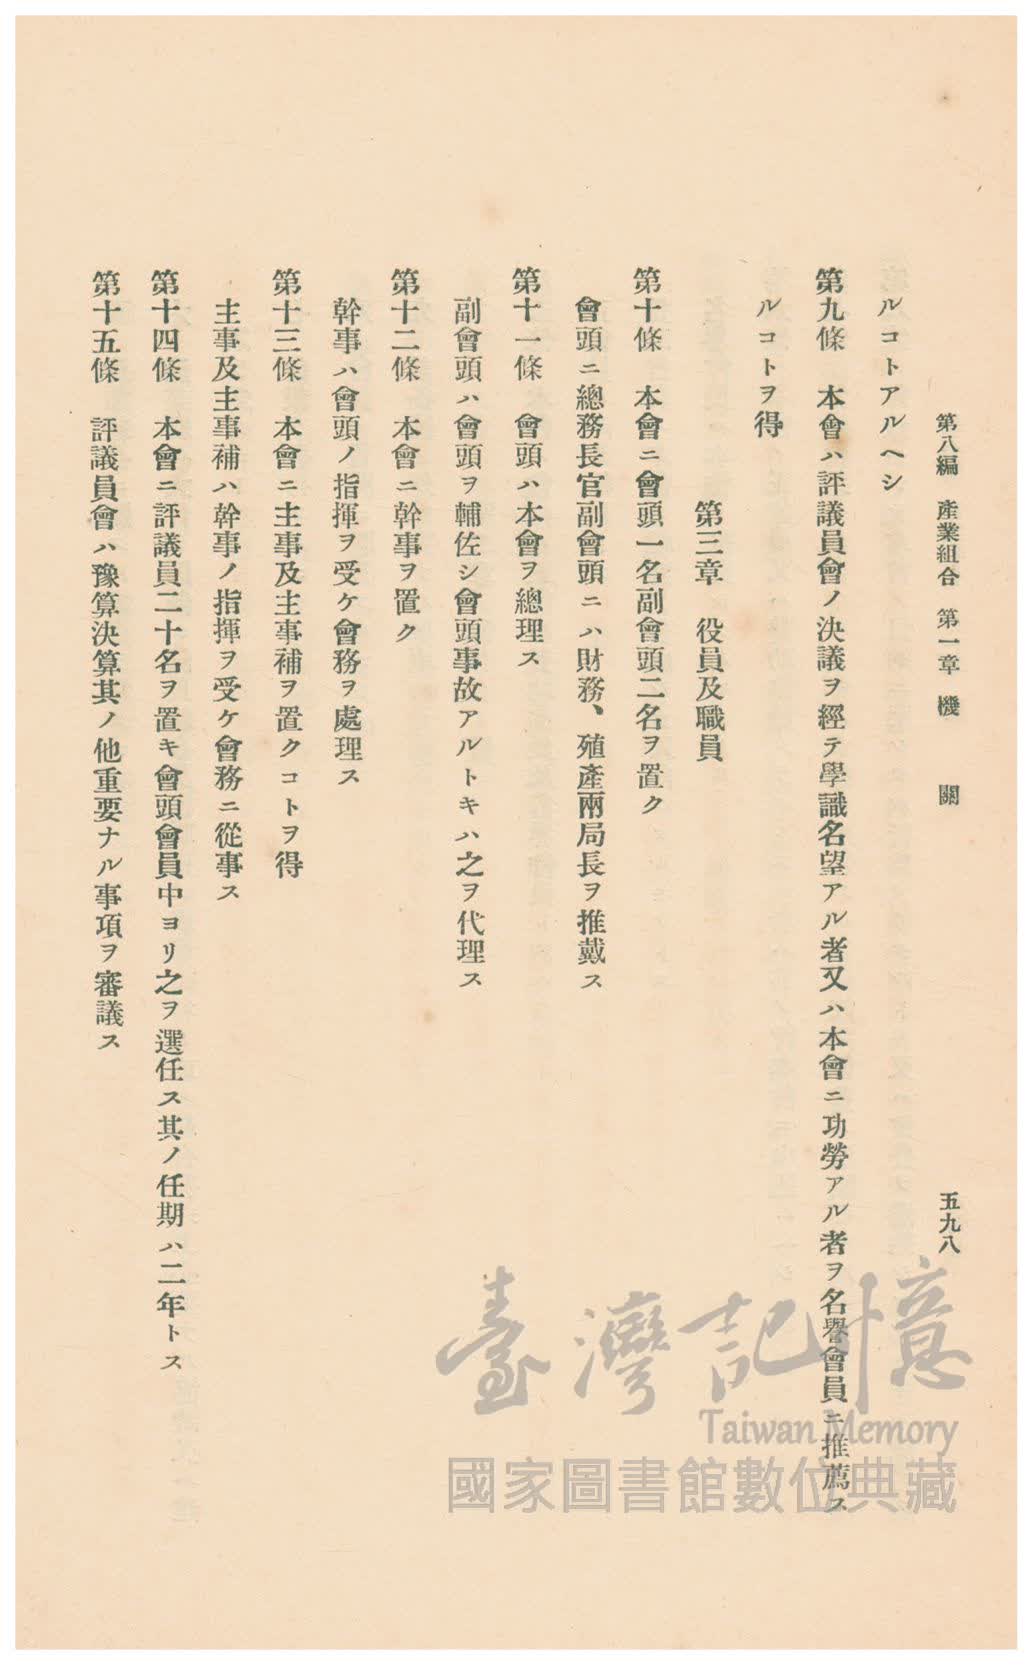 第八編　產業組合　第一章　機　關　五九八
ルコトアルヘシ
第九條　本會ハ評議員會ノ決議ヲ經テ學識名望アル者又ハ本會ニ功勞アル者ヲ名譽會員ニ推薦ス
ルコトヲ得
第三章　役員及職員
第十條　本會ニ會頭一名副會頭二名ヲ置ク
會頭ニ總務長官副會頭ニハ財務、殖產兩局長ヲ推戴ス
第十一條　會頭ハ本會ヲ總理ス
副會頭ハ會頭ヲ輔佐シ會頭事故アルトキハ之ヲ代理ス
第十二條　本會ニ幹事ヲ置ク
幹事ハ會頭ノ指揮ヲ受ケ會務ヲ處理ス
第十三條　本會ニ主事及主事補ヲ置クコトヲ得
主事及主事補ハ幹事ノ指揮ヲ受ケ會務ニ從事ス
第十四條　本會ニ評議員二十名ヲ置キ會頭會員中ヨリ之ヲ選任ス其ノ任期ハ二年トス
第十五條　評議員會ハ豫算決算其ノ他重要ナル事項ヲ審議ス
臺灣記憶
Taiwan Memory
國家圖書館數位典藏